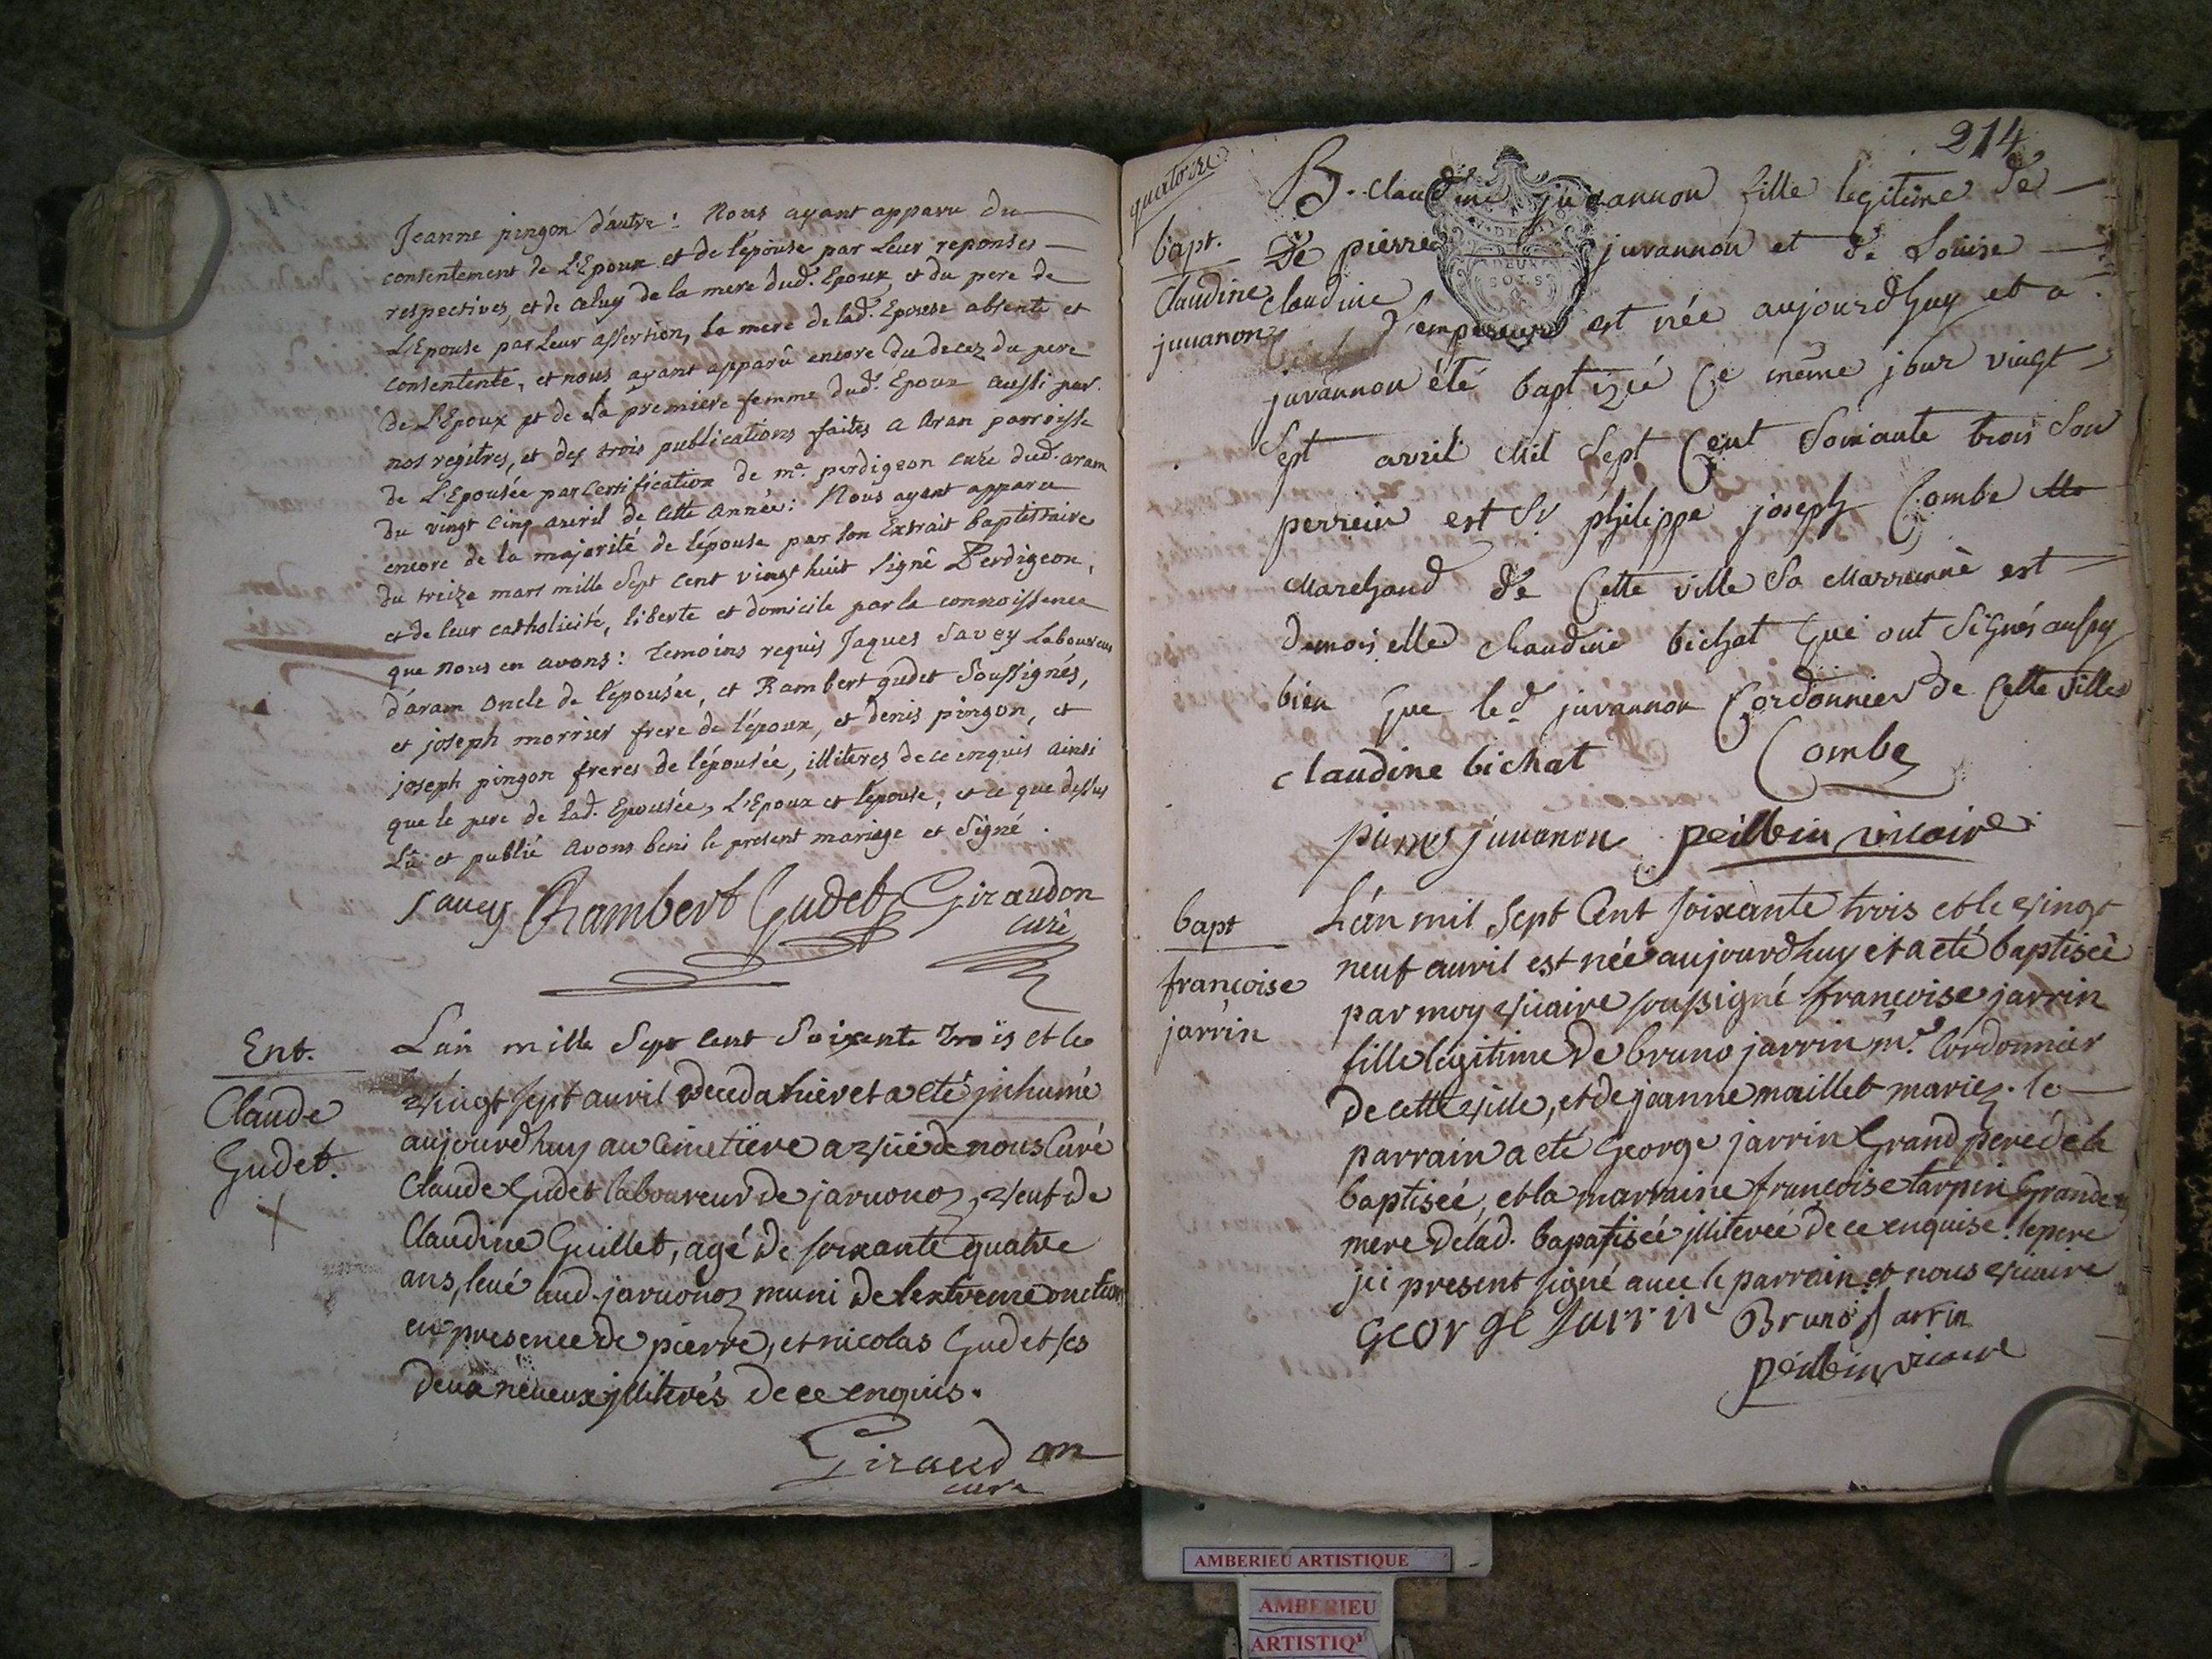 Jeanne pingon d'autre : Nous ayant apparu du
consentement de L'Epoux et de l'épouse par Leur reponses
respectives, et de celuy de la mere dud. Epoux, et du pere de
L'Epouse par Leur assertion, la mere de lad. Epouse absente et
consentente, et nous ayant apparû encore du decez du pere
de L'Epoux et de sa premiere femme dud. Epoux aussi par
nos regitres, et des trois publications faites a Aran parroisse
de L'Epousée par certification de mre perdigeon curé dud. aram
du vingt cinq avril de cette Année : Nous ayant apparu
encore de la majorité de l'épouse par son Extrait baptistaire
du treize mars mille Sept cent vingt huit Signé Perdigeon,
et de leur catholicité, liberte et domicile par la connoissence
que nous en avons : temoins requis Jaques Savey Laboureur
d'aram oncle de l'épousée, et Rambert gudet Soussignés,
et joseph morrier frere de l'époux, et denis pingon, et
joseph pingon freres de l'épousée, illiteres de ce enquis ainsi
que le pere de lad. Epousée, L'Epoux et l'epouse, et ce que dessus
Lû et publié avons beni le present mariage et Signé.
Savey Rambert Gudet Giraudon
curé
Ent.
Claude
Gudet.
L'an mille Sept cent Soixente trois et le
vingt sept auvril deceda hier et a eté inhumé
aujourdhuy au Cimetiere a vûe de nous Curé
Claude Gudet laboureur de jaruonoz, veuf de
Claudine Guillet, agé de soixante quatre
ans, levé aud. jaruonoz muni de lextreme onction
en presence de pierre, et nicolas Gudet ses
deux neveux illiterés de ce enquis.
Giraudon
curé
quatorze
214
bapt.
Claudine
juuanon
B. Claudine juvannon fille legitime de
de pierre juvannon et de Louise
claudine l'empereur est née aujourdhuy et a
juvannon été baptizée ce même jour vingt
Sept avril Mil Sept Cent Soixante trois Son
perrein est Sr philippe joseph Combe
Marchand de Cette ville Sa Marrenne est
demoiselle claudine bichat Qui ont Signés aussy
bien que led juvannon Cordonnier de Cette ville
claudine bichat Combe
pierre juuanon peillein vicaire
bapt
françoise
jarrin
L'an mil Sept Cent soixante trois et le vingt
neuf auvril est née aujourdhuy et a eté baptiseé
par moy vicaire soussigné françoise jarrin
fille legitime de bruno jarrin me. Cordonnier
de cette ville, et de jeanne maillet mariez. le
parrain a eté George jarrin Grand pere de la
baptiseé, et la marraine françoise tarpin Grande
mere de lad. bapatiseé illitereé de ce enquise. le pere
ici present signé avec le parrain et nous vicaire
GEORGE Jarrin Bruno Jarrin
peillein vicaire
DEUX
SOLS
AMBERIEU ARTISTIQUE
AMBERIEU
ARTISTIQ